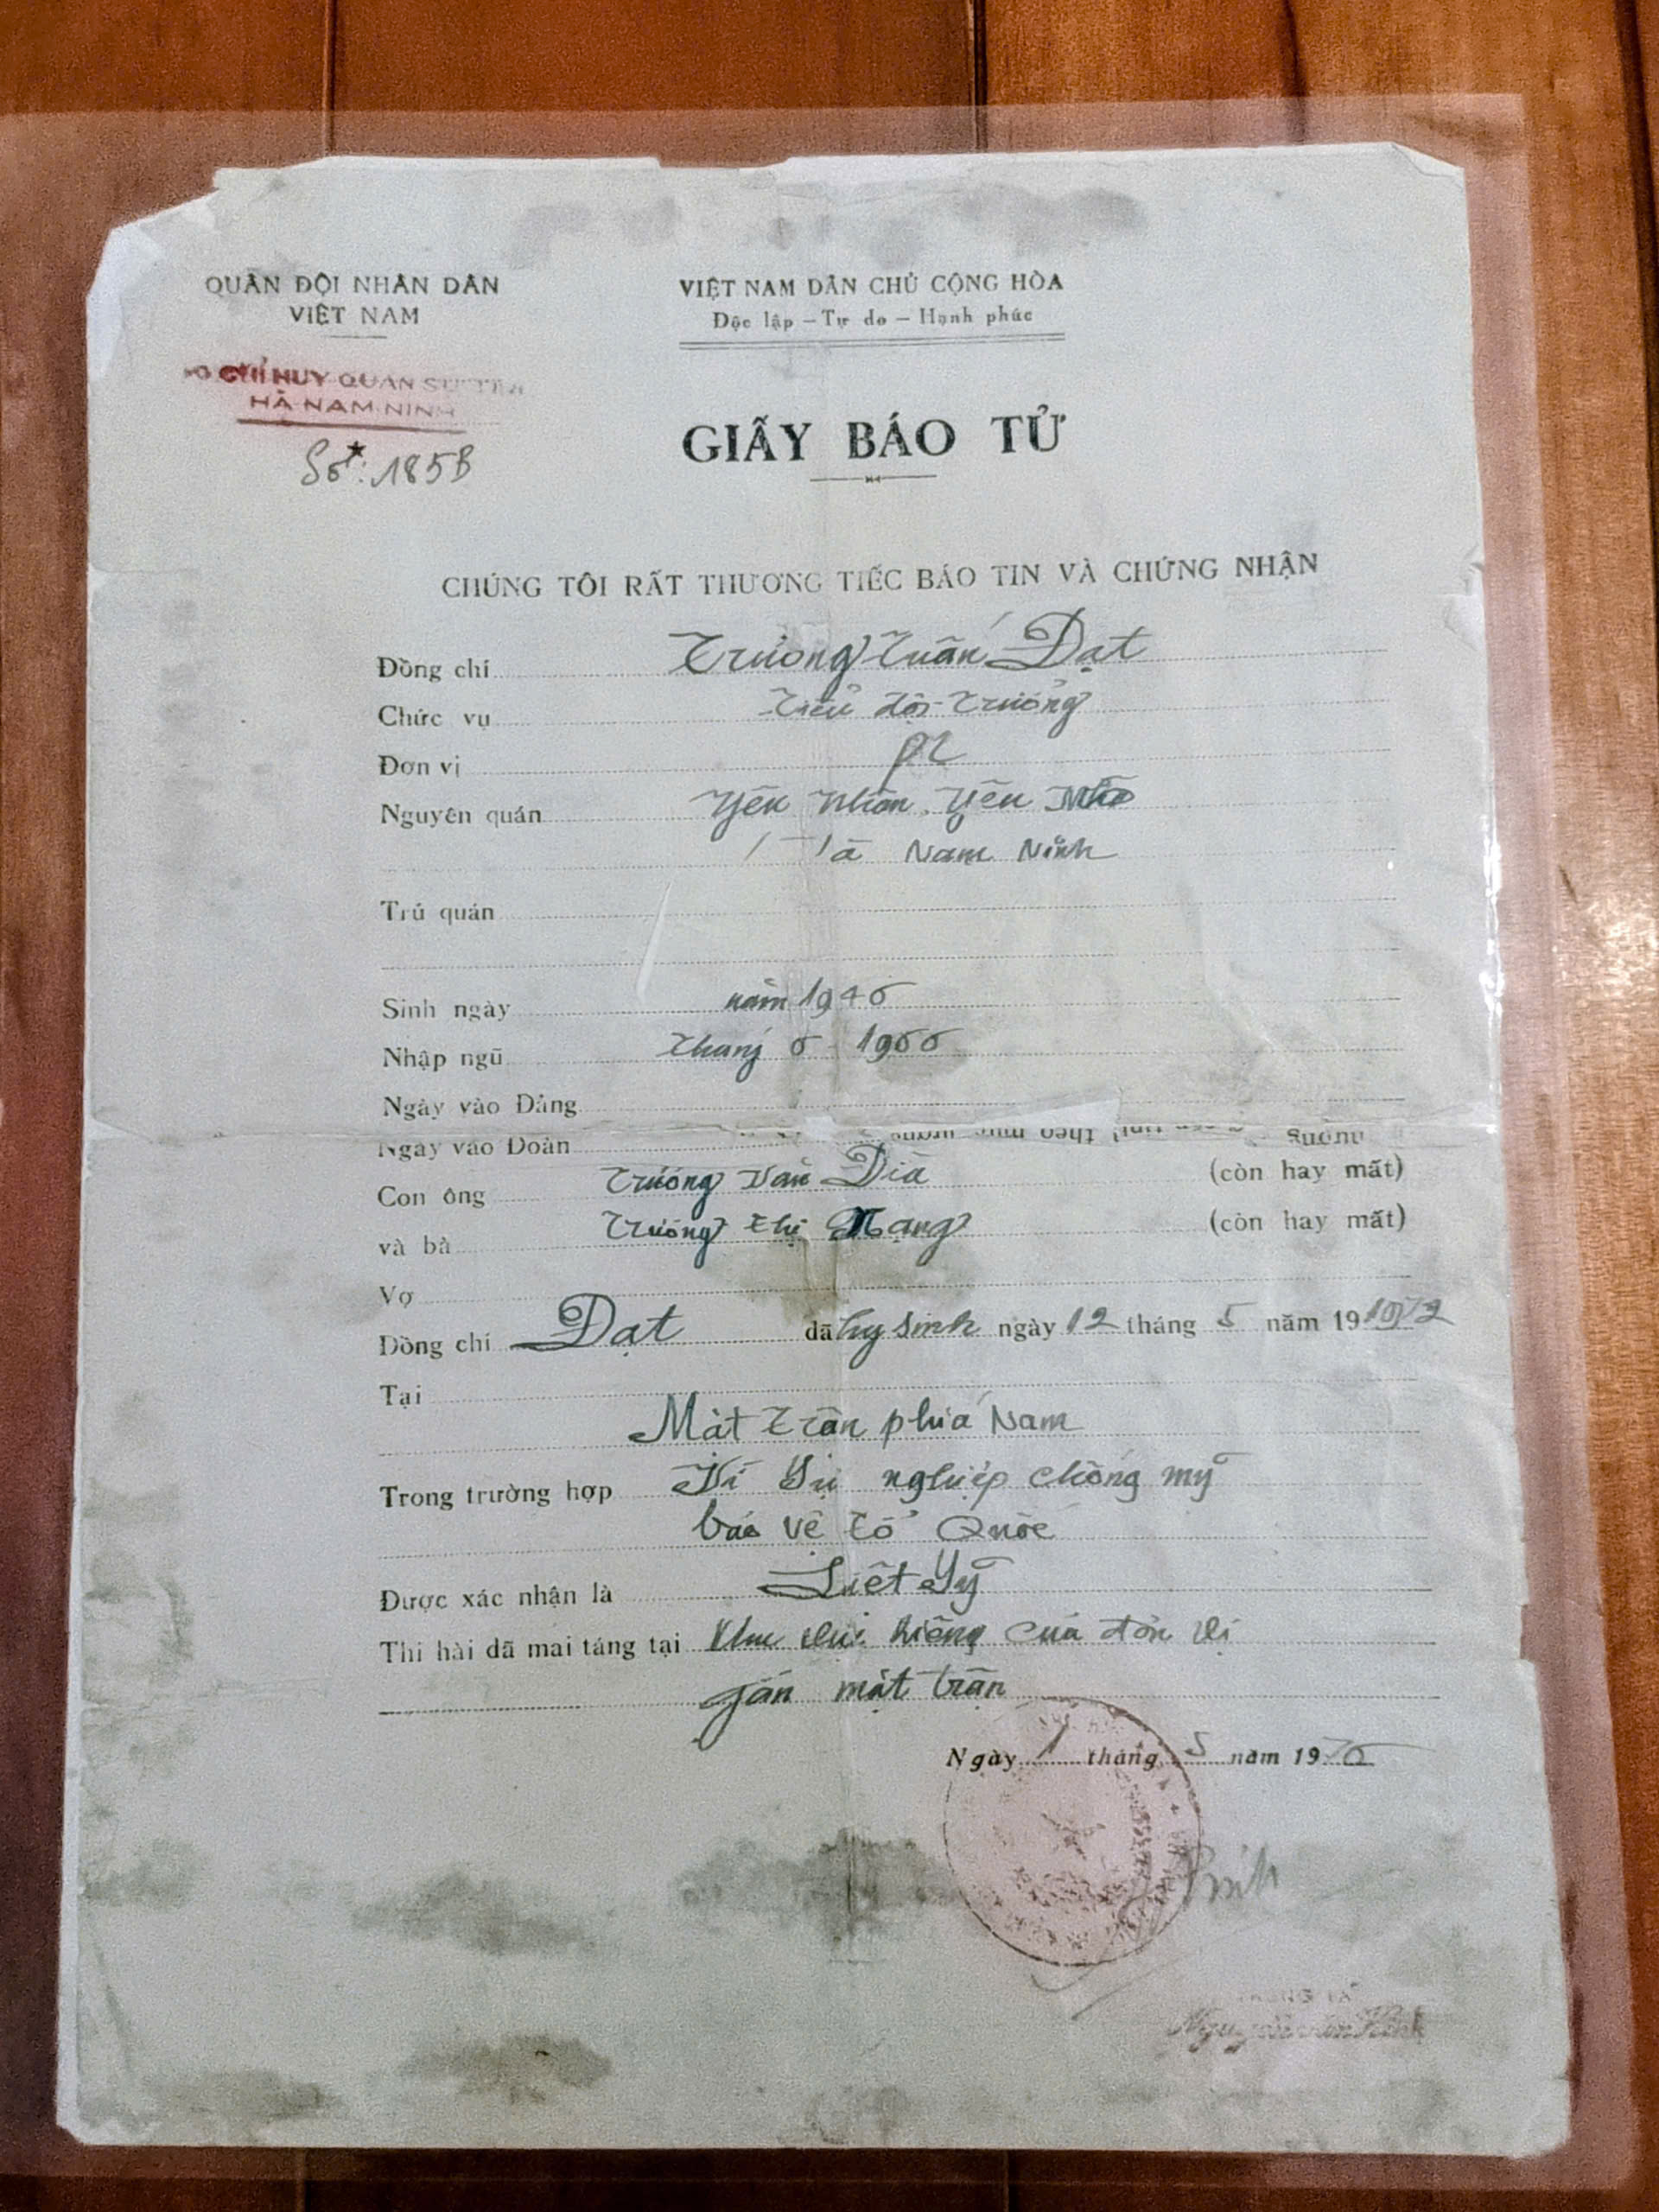 QUÂN ĐỘI NHÂN DÂN
VIỆT NAM
VIỆT NAM DÂN CHỦ CỘNG HÒA
Độc lập – Tự do – Hạnh phúc
CHỈ HUY QUÂN SỰ TỈNH
HÀ NAM NINH
Số: 185B
GIẤY BÁO TỬ
CHÚNG TÔI RẤT THƯƠNG TIẾC BÁO TIN VÀ CHỨNG NHẬN
Đồng chí Trương Tuấn Đạt
Chức vụ Tiểu đội trưởng
Đơn vị
Nguyên quán Yên Nhân, Yên Mô
Hà Nam Ninh
Trú quán
Sinh ngày năm 1946
Nhập ngũ Tháng 6 - 1966
Ngày vào Đảng
Ngày vào Đoàn
Con ông Trương Văn Dià (còn hay mất)
và bà Trương Thị Mạng (còn hay mất)
Vợ
Đồng chí Đạt đã hy sinh ngày 12 tháng 5 năm 19 1972
Tại
Mặt trận phía Nam
Trong trường hợp Vì sự nghiệp chống mỹ
bảo vệ tổ Quốc
Được xác nhận là Liệt sỹ
Thi hài đã mai táng tại khu vực riêng của đơn vị
gần mặt trận
Ngày 1 tháng 5 năm 1976